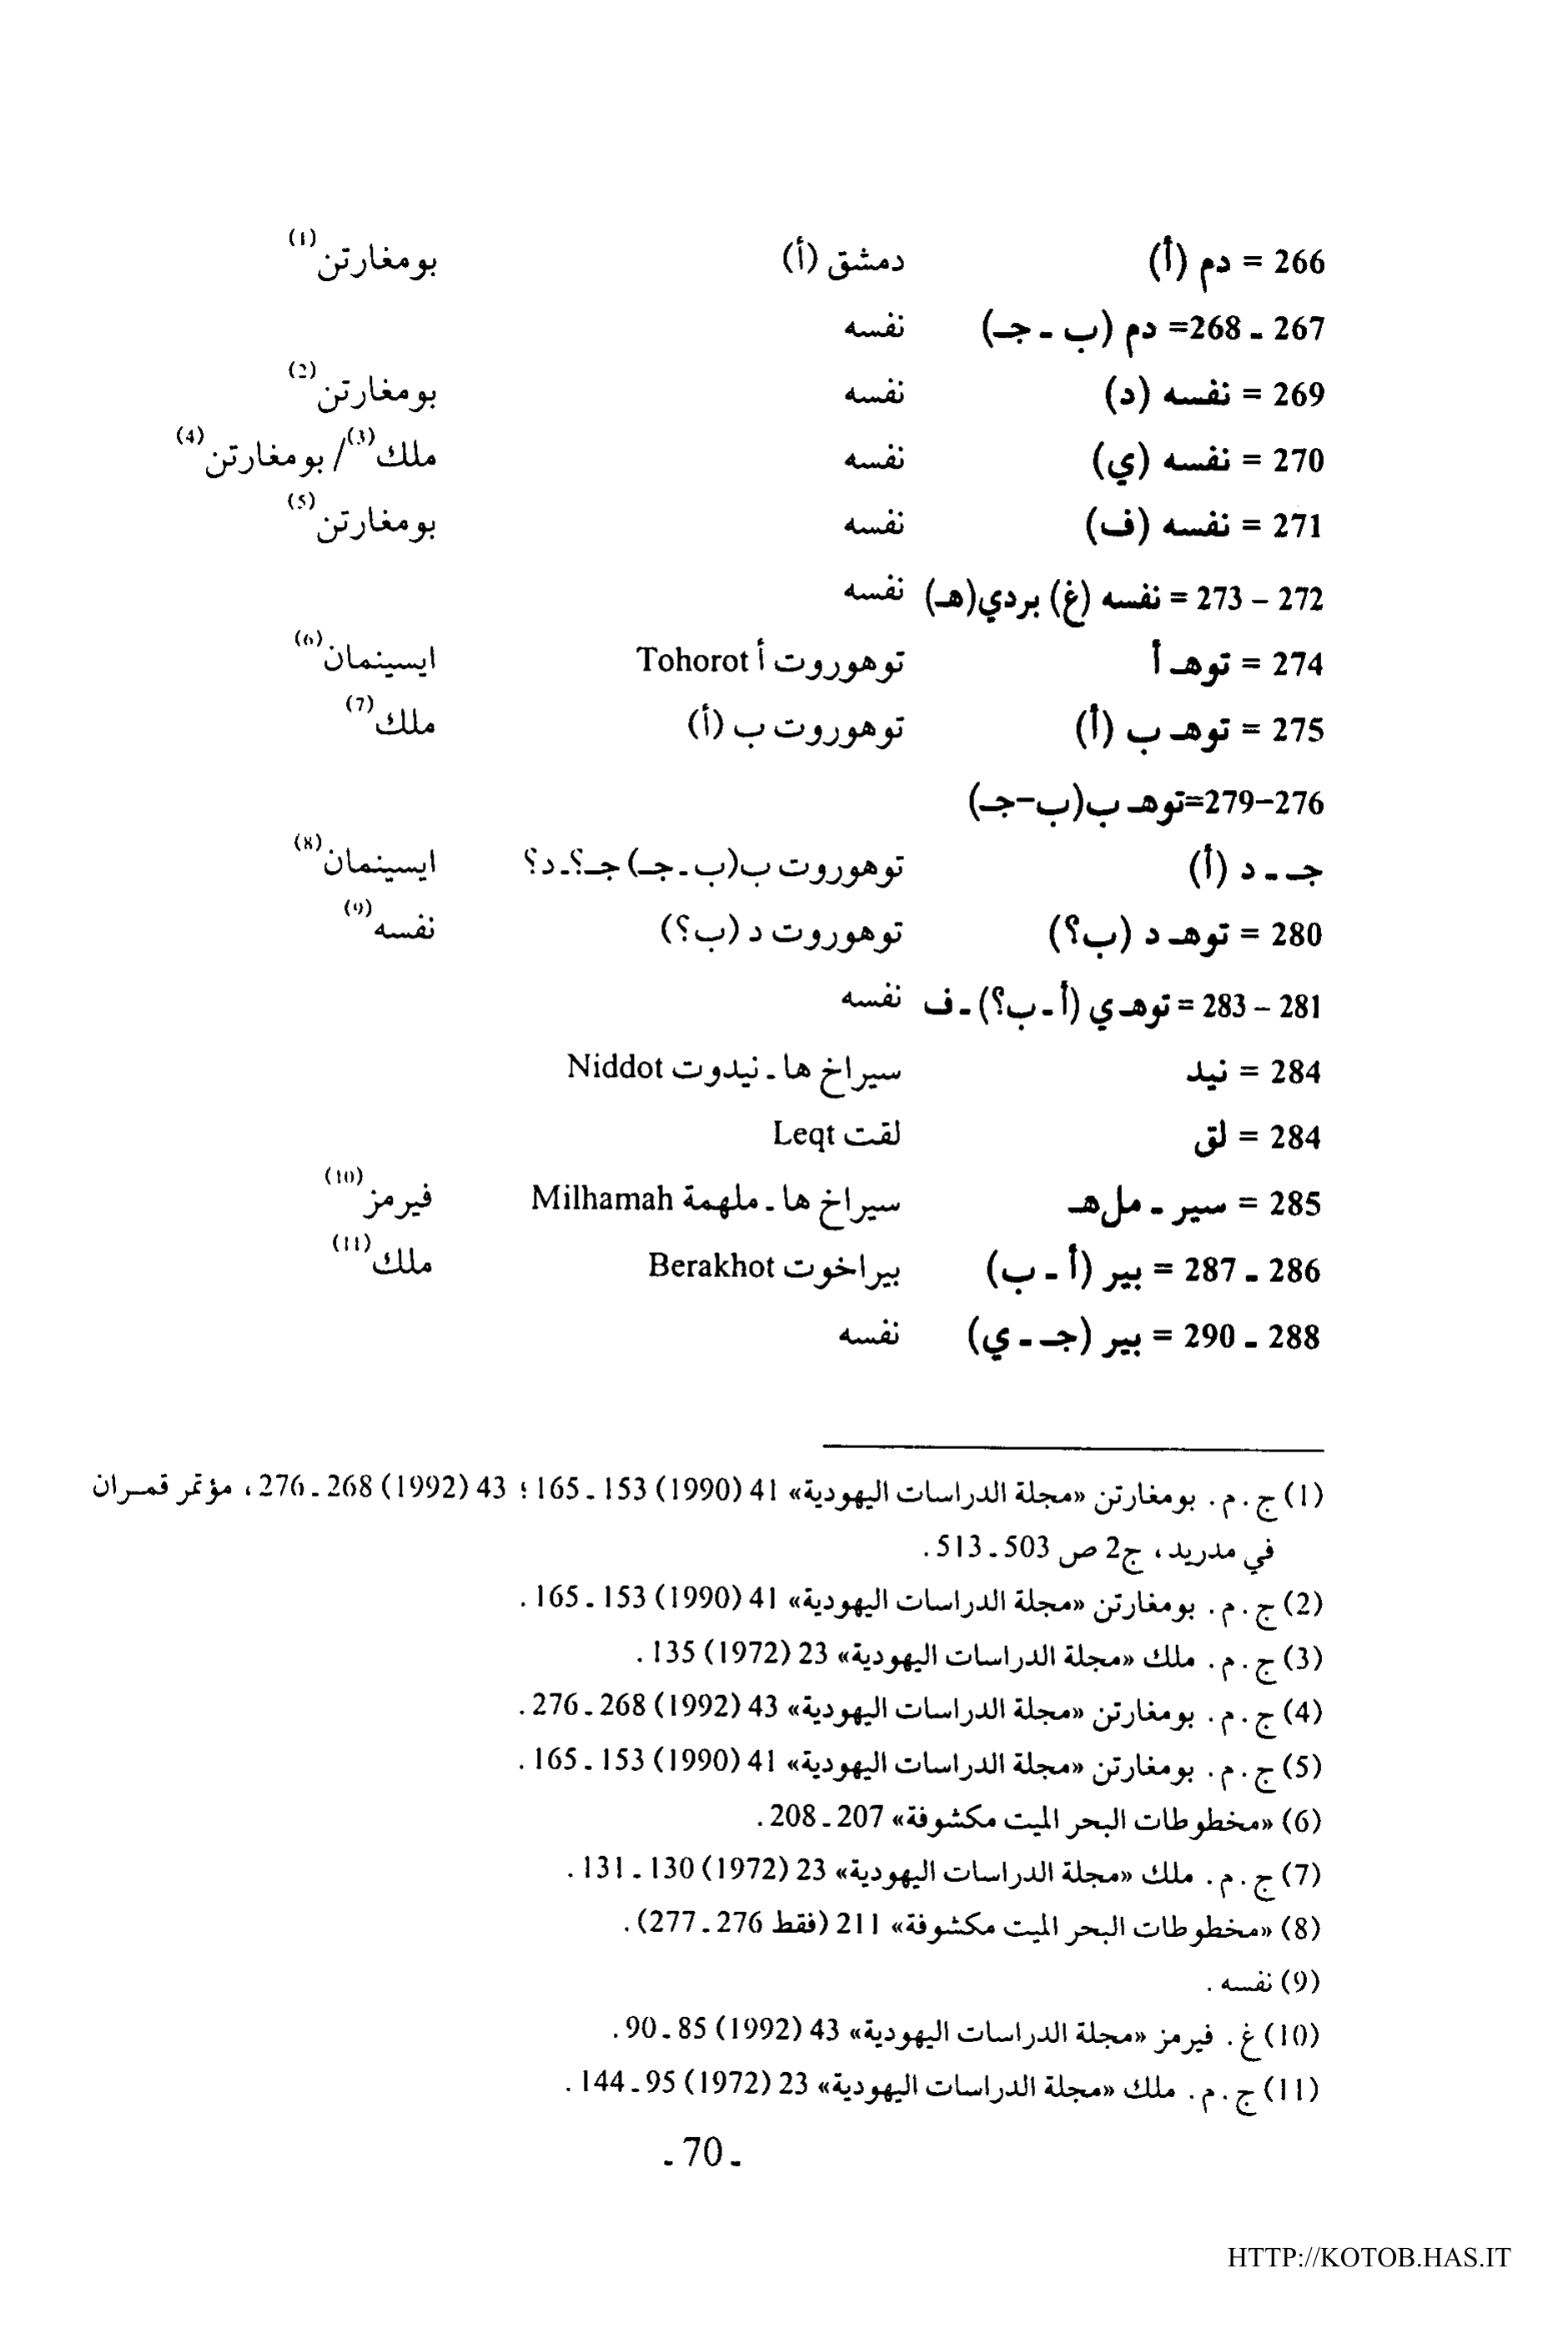 266 = دم (أ) دمشق (أ) بومغارتن(1)
267 ـ 268= دم (ب ـ جـ) نفسه
269 = نفسه (د) نفسه بومغارتن(2)
270 = نفسه (ي) نفسه ملك(3)/ بومغارتن(4)
271 = نفسه (ف) نفسه بومغارتن(5)
272 – 273 = نفسه (غ) بردي(هـ) نفسه
274 = توهـ أ توهوروت أ Tohorot ايسينمان(6)
275 = توهـ ب (أ) توهوروت ب (أ) ملك(7)
276–279=توهـ ب(ب–جـ)
جـ ـ د (أ) توهوروت ب(ب ـ جـ) جـ؟ـ د؟ ايسينمان(8)
280 = توهـ د (ب؟) توهوروت د (ب؟) نفسه(9)
281 – 283 = توهـ ي (أ ـ ب؟) ـ ف نفسه
284 = نيد سيراخ ها ـ نيدوت Niddot
284 = لق لقت Leqt
285 = سير ـ مل هـ سيراخ ها ـ ملهمة Milhamah فيرمز(10)
286 ـ 287 = بير (أ ـ ب) بيراخوت Berakhot ملك(11)
288 ـ 290 = بير (جـ ـ ي) نفسه
(1) ج . م . بومغارتن «مجلة الدراسات اليهودية» 41 (1990) 153 ـ 165 ؛ 43 (1992) 268 ـ 276 ، مؤتمر قمـران
في مدريد ، ج2 ص 503 ـ 513 .
(2) ج . م . بومغارتن «مجلة الدراسات اليهودية» 41 (1990) 153 ـ 165 .
(3) ج . م . ملك «مجلة الدراسات اليهودية» 23 (1972) 135 .
(4) ج . م . بومغارتن «مجلة الدراسات اليهودية» 43 (1992) 268 ـ 276 .
(5) ج . م . بومغارتن «مجلة الدراسات اليهودية» 41 (1990) 153 ـ 165 .
(6) «مخطوطات البحر الميت مكشوفة» 207 ـ 208 .
(7) ج . م . ملك «مجلة الدراسات اليهودية» 23 (1972) 130 ـ 131 .
(8) «مخطوطات البحر الميت مكشوفة» 211 (فقط 276 ـ 277) .
(9) نفسه .
(10) غ . فيرمز «مجلة الدراسات اليهودية» 43 (1992) 85 ـ 90 .
(11) ج . م . ملك «مجلة الدراسات اليهودية» 23 (1972) 95 ـ 144 .
ـ 70 ـ
HTTP://KOTOB.HAS.IT